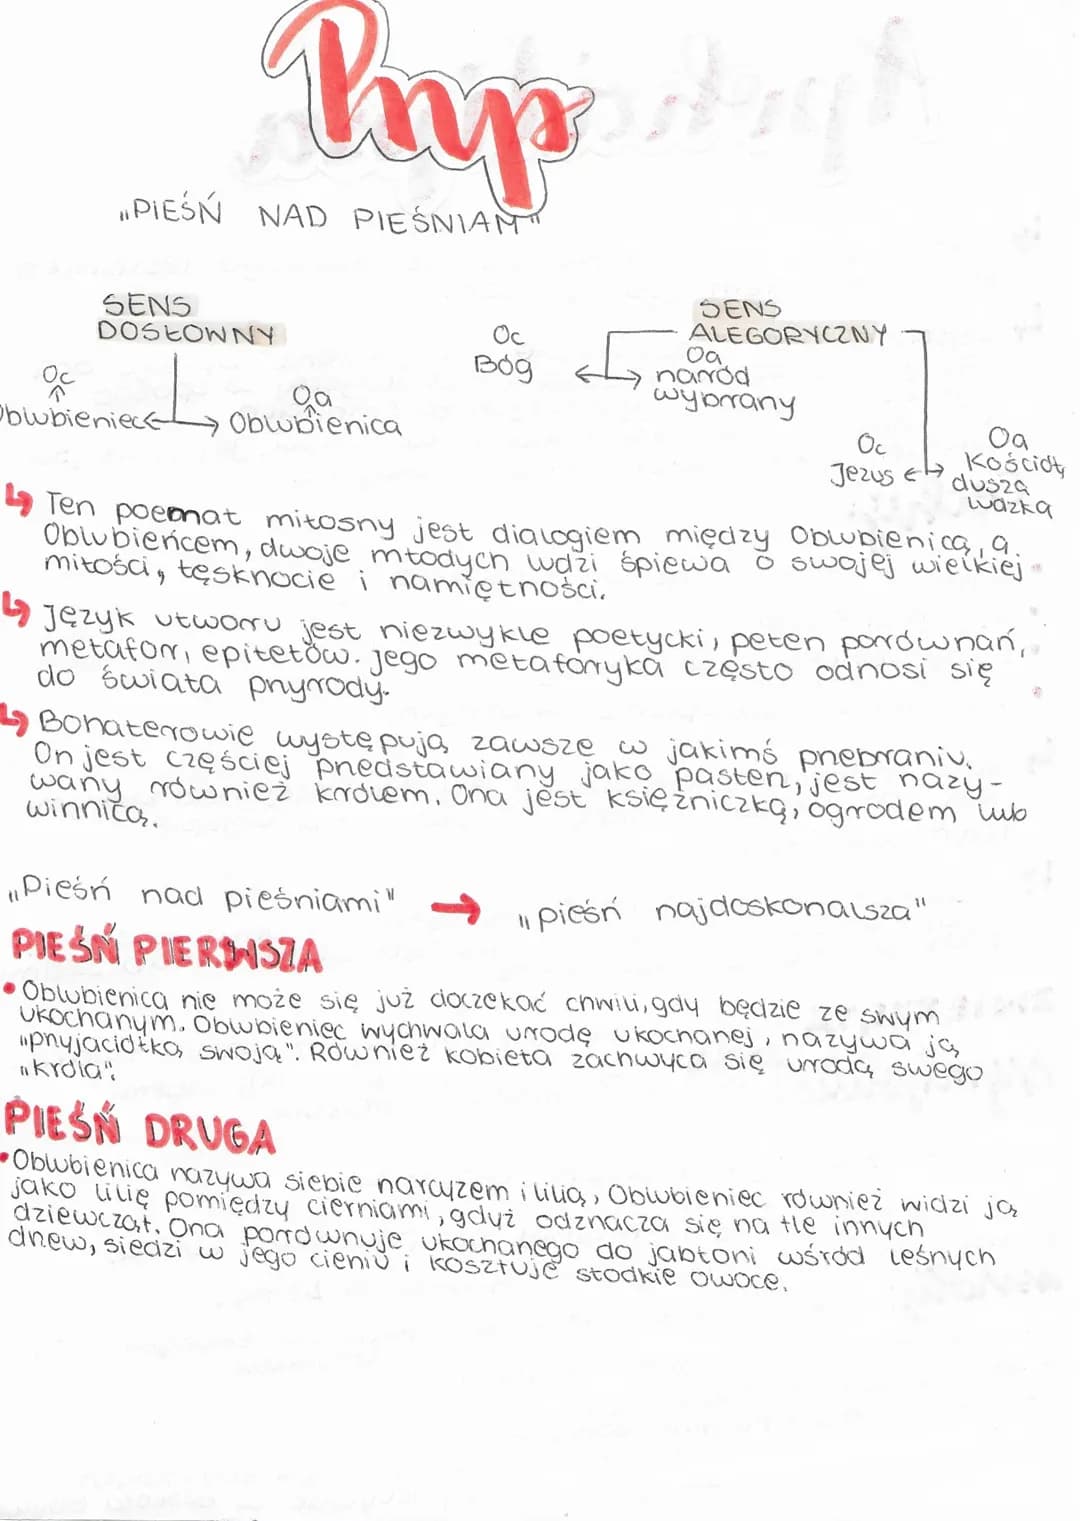 Pnp
„PIEŚŃ NAD PIEŚNIAMI"
SENS
DOSŁOWNY
Oc
Oblubieniec
Oa
Oblubienica
SENS
ALEGORYCZNY
Oc
Bóg
Oa
naród
wybrany
Oc
Jezus
Oa
Kościół,
dusza
ludzka
Ten poemat miłosny jest dialogiem między Oblubienicą, a
Oblubieńcem, dwoje młodych ludzi śpiewa o swojej wielkiej
miłości, tęsknocie i namiętności.
Język utworu jest niezwykle poetycki, pełen porównań,
metafor, epitetów. Jego metaforyka często odnosi się
do świata przyrody.
Bohaterowie występują zawsze w jakimś przebraniu.
On jest częściej przedstawiany jako pasterz, jest nazy-
wany również królem. Ona jest księżniczką, ogrodem lub
winnicą.
„Pieśń nad pieśniami" → „pieśń najdoskonalsza"
PIEŚŃ PIERWSZA
• Oblubienica nie może się już doczekać chwili, gdy będzie ze swym
ukochanym. Oblubieniec wychwala urodę ukochanej, nazywa ją
„przyjaciółką swoją". Również kobieta zachwyca się urodą swego
„króla".
PIEŚŃ DRUGA
• Oblubienica nazywa siebie narcyzem i lilią, Oblubieniec również widzi ją
jako lilię pomiędzy cierniami, gdyż odznacza się na tle innych
dziewcząt. Ona porównuje ukochanego do jabłoni wśród leśnych
drzew, siedzi w jego cieniu i kosztuje słodkie owoce.